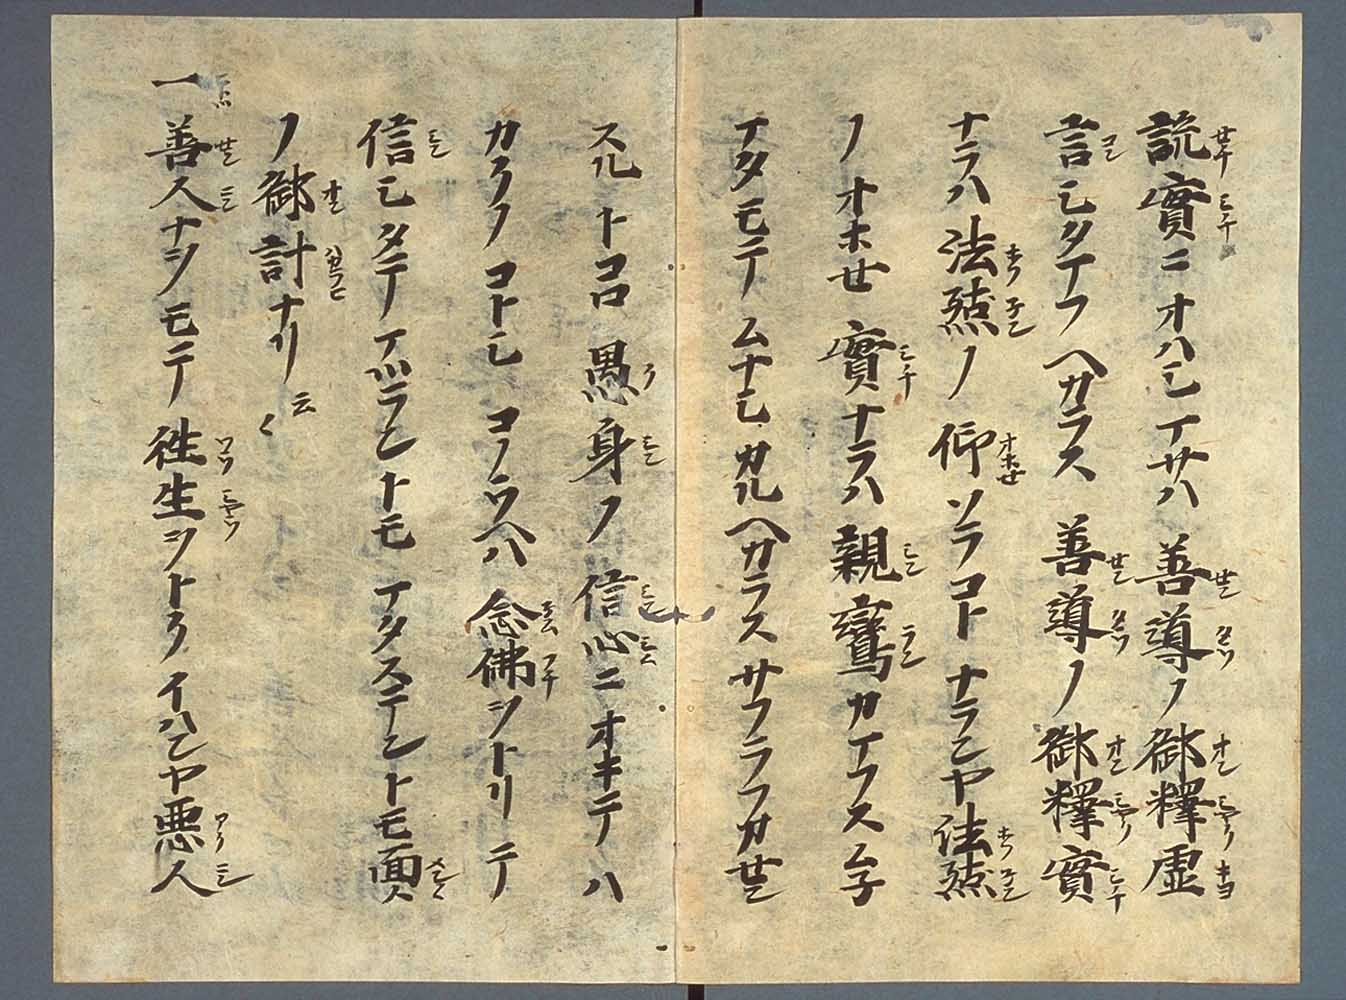 説實ニオハシマサハ善導ノ御釋虚
言シタマフヘカラス善導ノ御釋實
ナラハ法然ノ仰ソラコトナランヤ法然
ノオホセ實ナラハ親鸞カマフスムネ
マタモテムナシカルヘカラスサフラフカセン
スルトコロ愚身ノ信心ニオキテハ
カクノコトシコノウヘハ念佛ヲトリテ
信シタテマツラントモマタステントモ面
ノ御計ナリ云〱
一善人ナヲモテ往生ヲトクイハンヤ悪人